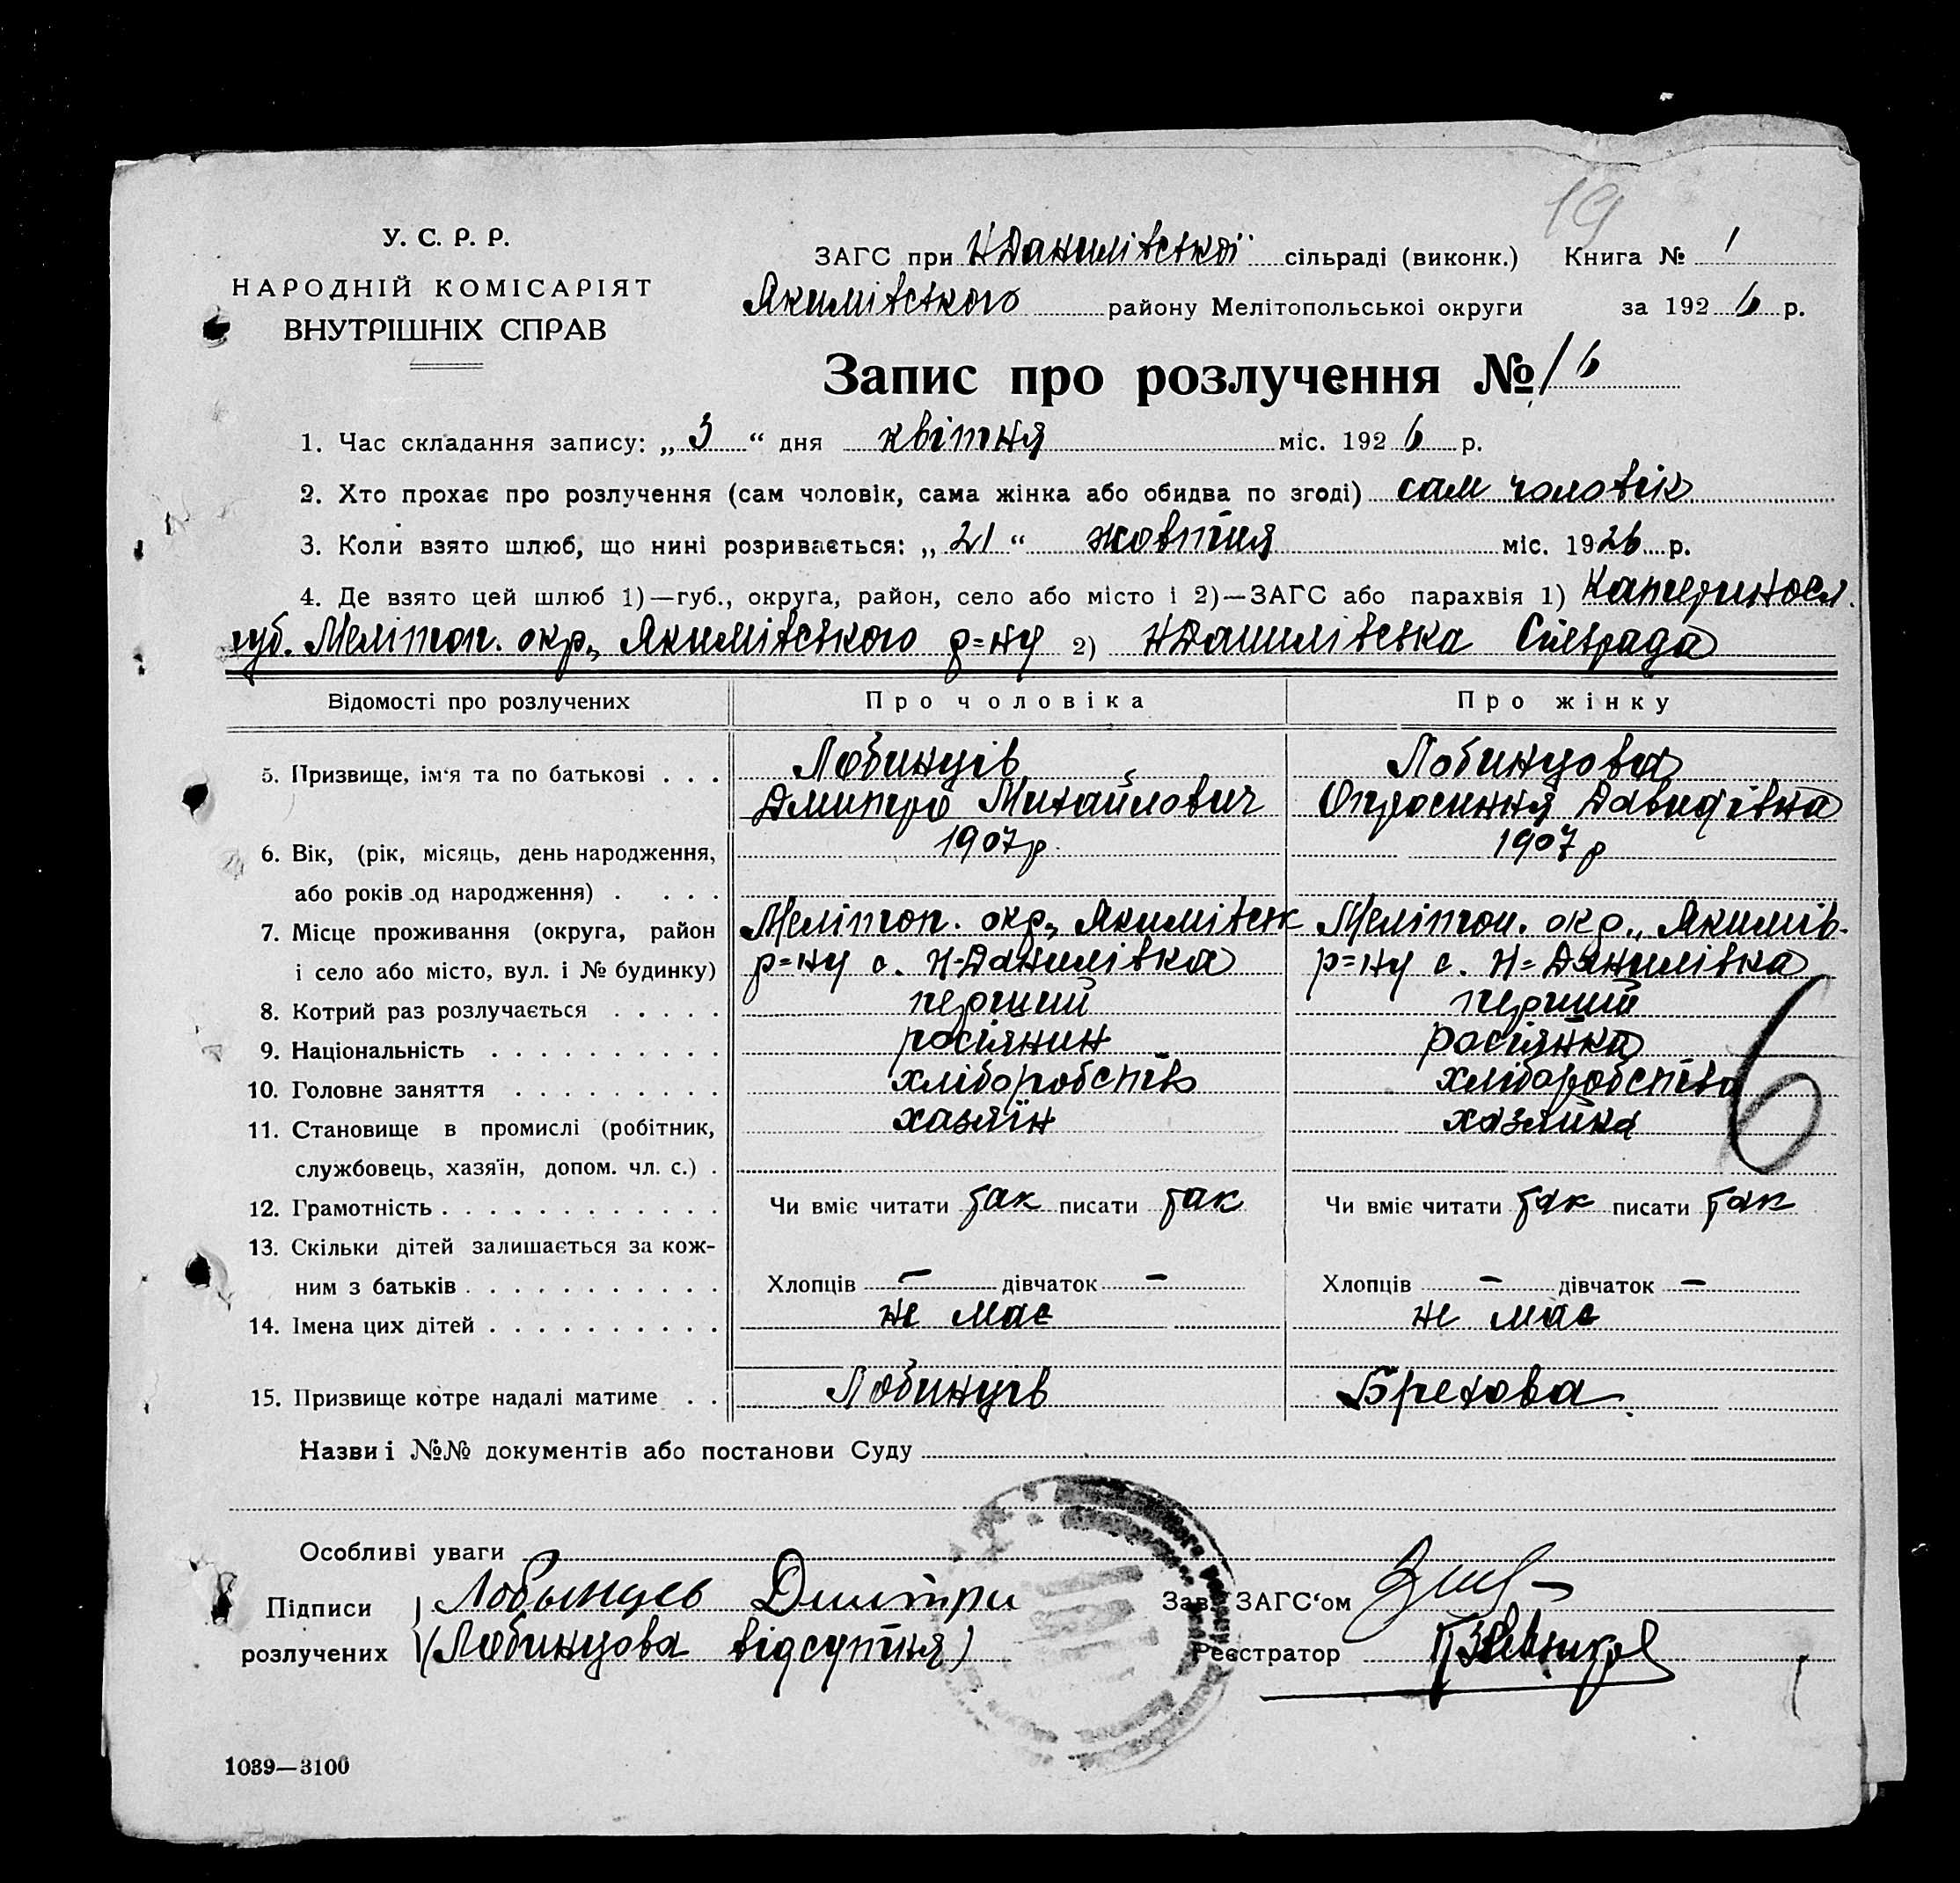 19
У. С. Р. Р.
НАРОДНІЙ КОМІСАРІЯТ
ВНУТРІШНІХ СПРАВ
ЗАГС при НДанилівської сільраді (виконк.) Книга № 1
Якимівського району Мелітопольської округи за 1926 р.
Запис про розлучення № 16
1. Час складання запису: „ 3 “ дня квітня міс. 1926 р.
2. Хто прохає про розлучення (сам чоловік, сама жінка або обидва по згоді) сам чоловік
3. Коли взято шлюб, що нині розривається: „ 21 “ жовтня міс. 1926 р.
4. Де взято цей шлюб 1)—губ., округа, район, село або місто і 2)—ЗАГС або парахвія 1) Катериносл.
губ. Мелітоп. окр., Якимівського р=ну 2) НДанилівська Сільрада
Відомості про розлучених Про чоловіка Про жінку
5. Призвище, ім‘я та по батькові . . . Лобинців Лобинцова
Дмитро Михайлович Опросиння Давидівна
6. Вік, (рік, місяць, день народження, 1907р. 1907р
або років од народження) . . . .
7. Місце проживання (округа, район Мелітоп. окр., Якимівськ Мелітоп. окр., Якимів.
і село або місто, вул. і № будинку) р=ну с. Н=Данилівка р=ну с. Н=Данилівка
8. Котрий раз розлучається . . . . . перший перший
9. Національність . . . . . . . . . . росіянин росіянка
10. Головне заняття . . . . . . . . . хліборобство хліборобство
11. Становище в промислі (робітник, хазяїн хазяйка
службовець, хазяїн, допом. чл. с.) .
6
12. Грамотність . . . . . . . . . . . . Чи вміє читати так писати так Чи вміє читати так писати так
13. Скільки дітей залишається за кож-
ним з батьків . . . . . . . . . . . Хлопців — дівчаток — Хлопців — дівчаток —
14. Імена цих дітей . . . . . . . . . . не має не має
15. Призвище котре надалі матиме . . Лобинців Брехова
Назви і №№ документів або постанови Суду
Особливі уваги
Підписи Лобынцев Дмитри Зав. ЗАГС‘ом
розлучених (Лобинцова відсутня) Реєстратор
1039—3100